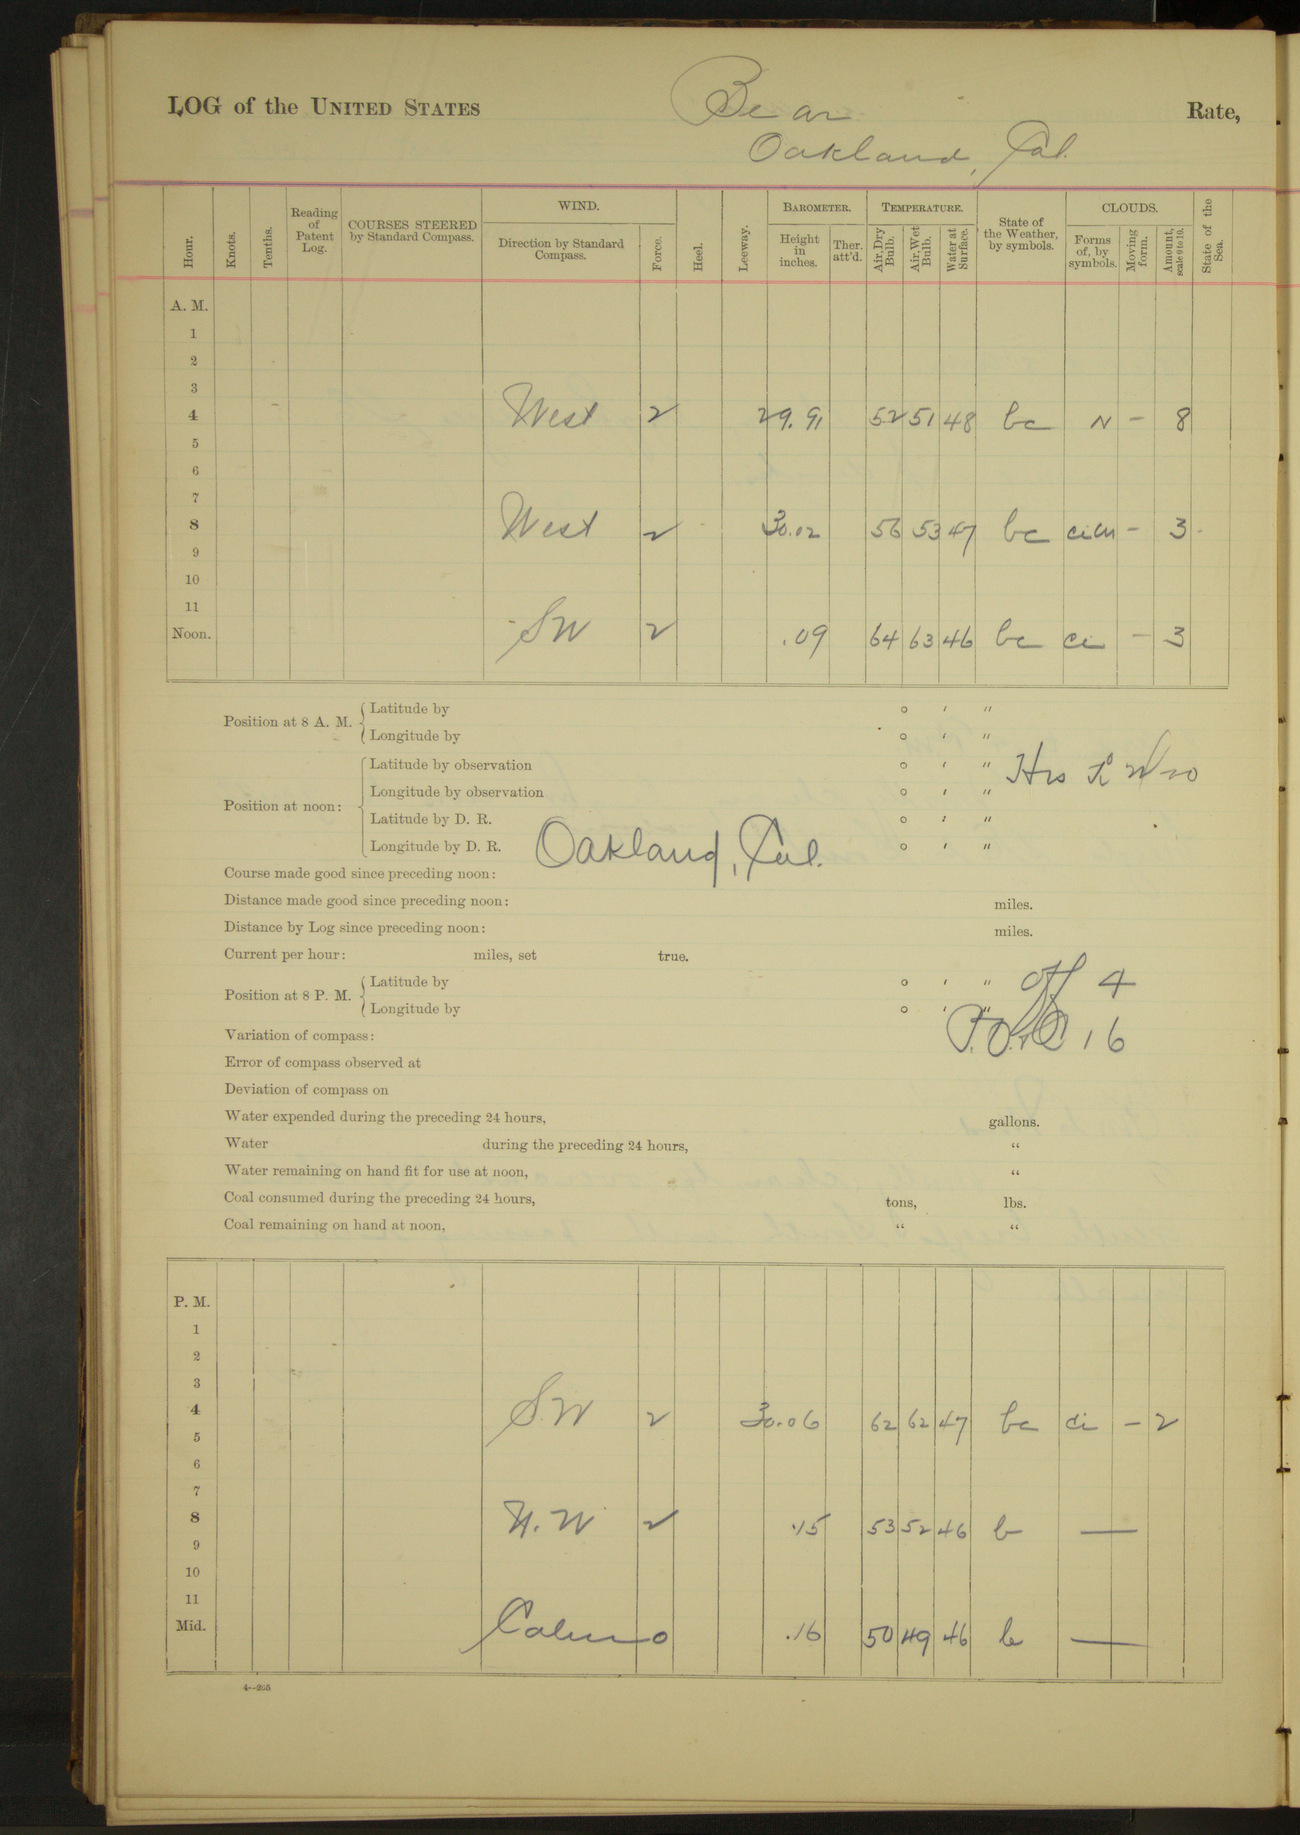 LOG of the UNITED STATES Bear Rate,
Oakland, Cal.
Hour.
Knots.
Tenths.
Reading of Patent Log.
COURSES STEERED by Standard Compass.
WIND.
Direction by Standard Compass.
Force.
Heel.
Leeway.
BAROMETER.
Height in inches.
Ther. att'd.
TEMPERATURE.
Air, Dry Bulb.
Air, Wet Bulb.
Water at Surface.
State of the Weather, by symbols.
CLOUDS.
Forms of, by symbols.
Moving form.
Amount, scale 0 to 10.
State of the Sea.
A. M.
1
2
3
4 West 2 29.91 52 51 48 bc N - 8
5
6
7
8 West 2 30.02 56 53 47 bc cicu - 3
9
10
11
Noon. SW 2 .09 64 63 46 bc ci - 3
Position at 8 A. M. { Latitude by ° ′ ″
Longitude by ° ′ ″
Position at noon: { Latitude by observation ° ′ ″
Longitude by observation ° ′ ″
Latitude by D. R. ° ′ ″
Longitude by D. R. Oakland, Cal. ° ′ ″
Course made good since preceding noon:
Distance made good since preceding noon: miles.
Distance by Log since preceding noon: miles.
Current per hour: miles, set true.
Position at 8 P. M. { Latitude by ° ′ ″ Off 4
Longitude by ° ′ ″
Variation of compass: 16
Error of compass observed at
Deviation of compass on
Water expended during the preceding 24 hours, gallons.
Water during the preceding 24 hours, “
Water remaining on hand fit for use at noon, “
Coal consumed during the preceding 24 hours, tons, lbs.
Coal remaining on hand at noon, “ “
P. M.
1
2
3
4 S.W 2 30.06 62 62 47 bc ci - 2
5
6
7
8 N.W 2 .15 53 52 46 b —
9
10
11
Mid. Calm 0 .16 50 49 46 b —
4--205